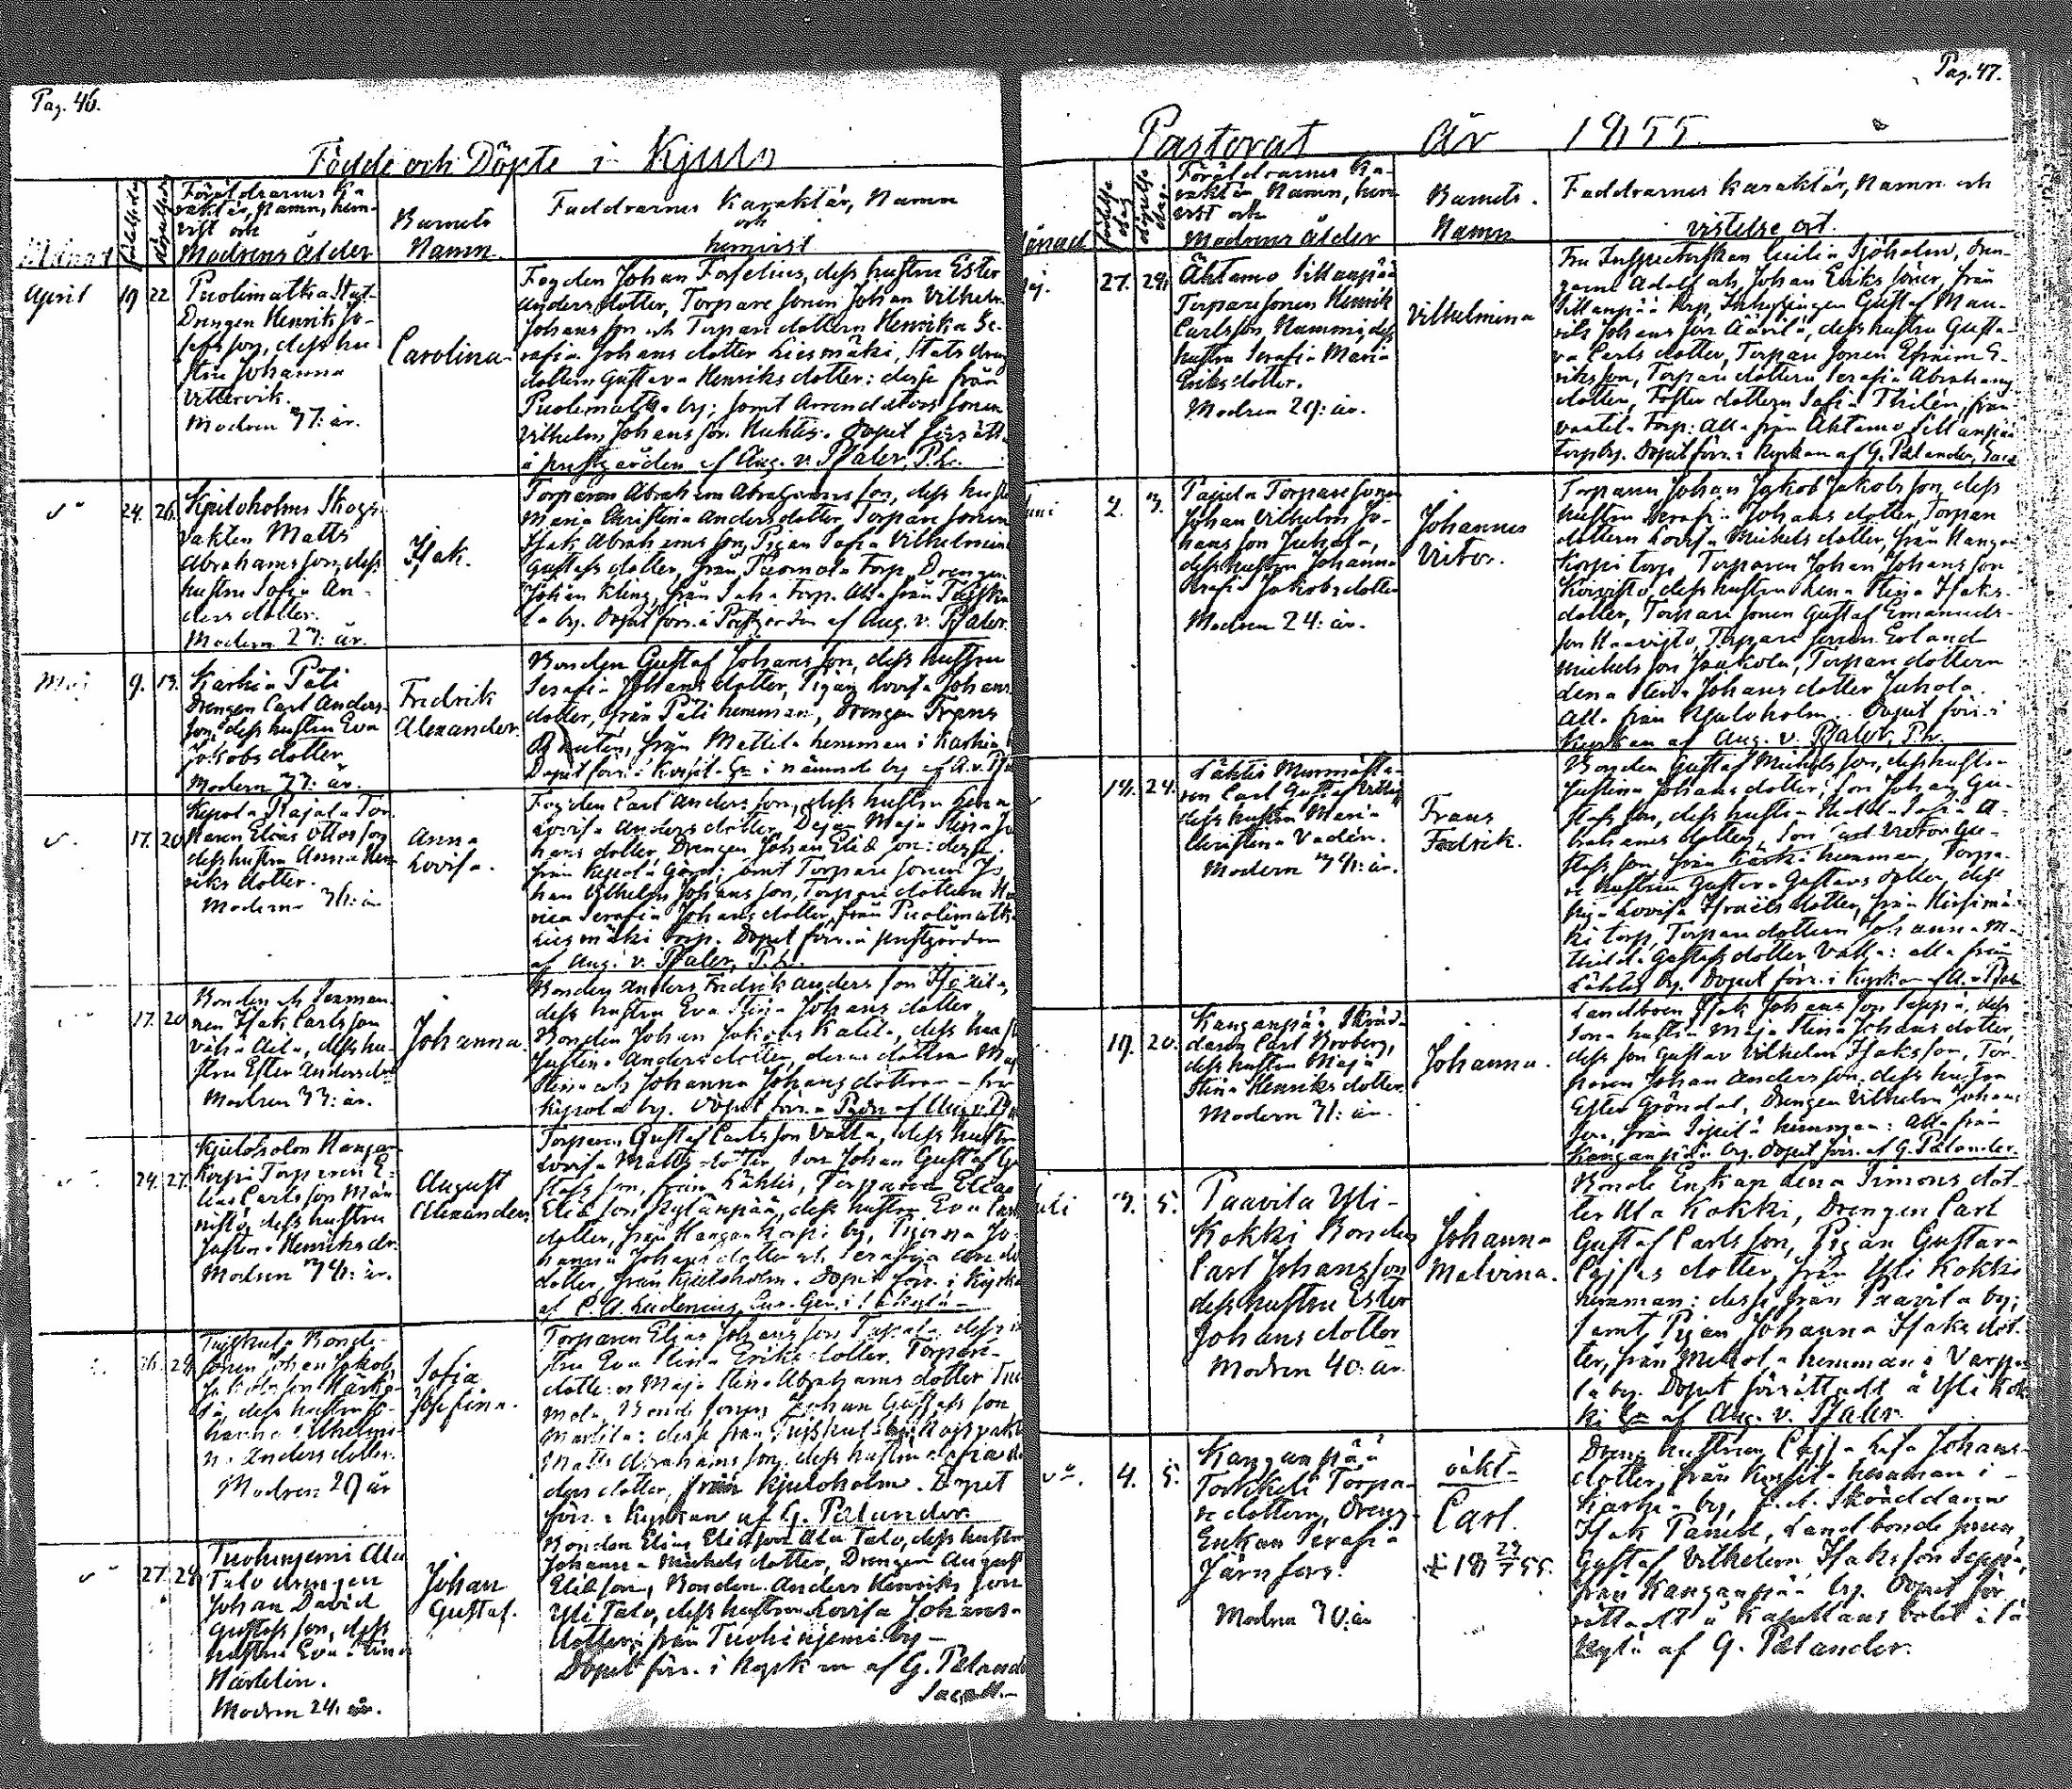 Pag. 46.
Födde och Döpte i Kjulo
Månad
Föräldrarnes Ka-
raktär, Namn, hem-
vist och
Modrens Ålder
Barnets
Namn
Faddrarnes Karaktär, Namn
och
hemvist
April
19
22
Puolimatka Stat-
Drengen Henrik Jo-
sefsson, dess hu-
stru Johanna
Vittervik.
Modren 37: år.
Carolina
Fogden Johan Forselius, dess hustru Ester
Andersdotter, Torparesonen Johan Vilhelm
Johansson och Torparedottern Henrika Se-
rafia Johansdotter Liesmäki, Statdreng
dottern Gustava Henriksdotter: desse från
Puolimatka by; samt Arrendators sonen
Vilhelm Johansson Huhtis. Dopet förrätt.
å prestgården af Aug. v. Pfaler, P.L.
24.
26.
Kjuloholms Skogs-
vakten Matts
Abrahamsson, dess
hustru Sofia An-
dersdotter.
Modern 27: år.
Isak.
Torparen Abraham Abrahamsson, dess hust
Maria Christina Andersdotter, Torparesonen
Isak Abrahamsson, Pigan Sofia Vilhelmin
Gustafsdotter, från Tuomola Torp, Drengen
Johan Kling, från Torp. Alla från
la by. Dopet förr. å Prestgården af Aug. v. Pfaler.
Maj
9.
13.
Karhia Päti
Drengen Carl Anders-
son, dess hustru Eva
Jakobsdotter
Modern 33: år.
Fredrik
Alexander.
Bonden Gustaf Johansson, dess hustru
Serafia Johansdotter, Pigan Lovisa Johans
dotter, från Päti hemman, Drengen Frans
från Mattila hemman i Karhia
Dopet förr. i i nämnde by af A. v. Pfa
17.
20
Kepola Rajala Tor-
paren Elias Ottosson
dess hustru Anna Hen-
riksdotter.
Modern 36: år
Anna
Lovisa.
Fogden Carl Andersson, dess hustru Lena
Lovisa Andersdotter, Dejan Maja Stina Jo
hansdotter, Drengen Johan Eliasson: desse
från Kepola Gård; samt Torparesonen Jo
han Vilhelm Johansson, Torparedottern Hen
rica Serafia Johansdotter från Puolimatka
Liesmäki torp. Dopet förr. å prestgården
af Aug. v. Pfaler, P.L.
17.
20
Bonden och Sexman-
nen Isak Carlsson
Vähä Aila, dess hu-
stru Ester Andersdr
Modren 33: år.
Johanna.
Bonden Anders Fredrik Andersson
dess hustru Eva Stina Johansdotter
Bonden Johan Jakobs Katila, dess hus
Justina Andersdotter, deras döttrar Maj
Stina och Johanna Johansdöttrar – från
Kepola by. Dopet förr. å Pgdn af Aug v. Pfa
24.
27.
Kjuloholm Hangan
Korpi Torparen E-
lias Carlsson Män-
nistö, dess hustru
Justina Henriksdr.
Modren 34: år.
August
Alexander.
Torparen Gustaf Carlsson Valla, dess hustr
Lovisa Mattsdotter, son Johan Gustaf Gu
stafsson, från Lähtis, Torparen Elias
Eliasson Kylänpää, dess hustru Eva Carls
dotter, från Hangankorpi by, Pigorna Jo
hanna Johansdotter och Serafia
dotter, från Kjuloholm. Dopet förr. i Kyrka
af C. A. Lidenius,
26.
29.
Bonde-
sonen Johan Jakob
Jakobsson Härkä-
lä, dess hustru Jo-
hanna Vilhelmi-
na Andersdotter.
Modren 29 år
Sofia
Josefina.
Torparen Elias Johansson dess
stru Eva Stina Eriksdotter. Torpare-
dottern Maja Stina Abrahamsdotter Tuo
mola, Bondesonen Johan Gustafsson
Mattila: desse från Skogsvakt
Matts Abrahamsson, dess hustru Sofia An
dersdotter, från Kjuloholm. Dopet
förr. i Kyrkan af G. Pelander
27.
29
Tuohiniemi Ala
Talo drengen
Johan David
Gustafsson, dess
hustru Eva Stina
Härdelin.
Modren 24. år.
Johan
Gustaf.
Bonden Elias Eliasson Ala Talo, dess hustru
Johanna Michelsdotter, Drengen August
Eliasson, Bonden Anders Henriksson
Yli Talo, dess hustru Lovisa Johans-
dotter, från Tuohiniemi by –
Dopet förr. i Kyrkan af G. Pelande
Sacell.–
Pag. 47.
Pastorat År 1855.
Månad
Födelse
dag
döpelse
dag.
Föräldrarnes Ka-
raktär, Namn, hem
vist och
Modrens Ålder
Barnets
Namn
Faddrarnes Karaktär, Namn och
vistelse ort.
27.
29.
Äktamo Sillanpää
Torparesonen Henrik
Carlsson Nummi, dess
hustru Serafia Maria
Eriksdotter.
Modren 29: år.
Vilhelmina
Fru Inspectorskan Cecilia Sjöholm, Dren-
garne Adolf och Johan Eriks söner, från
Sillanpää torp, Inhysingen Gustaf Mau-
rits Johansson Äävilä, dess hustru Gusta-
va Carlsdotter, Torparesonen Efraim E-
riksson, Torparedottern Serafia Abrahams
dotter, Fosterdottern Sofia Thilén, från
torp: Alla från Äktamo Sillanpää
torp by. Dopet förr. i Kyrkan af G. Pelander, Sace
2.
3.
Pajula Torparesonen
Johan Vilhelm Jo-
hansson Juhola,
dess hustru Johanna
Serafia Jakobsdotter
Modren 24: år.
Johannes
Victor.
Torparen Johan Jakob Jakobsson, dess
hustru Serafia Johansdotter, Torpare
dottern Lovisa Michelsdotter, från Hangan
Korpi torp, Torparen Johan Johansson
Koivisto, dess hustru Lena Stina Isaks-
dotter, Torparesonen Gustaf Emanuels-
son Haavisto, Torparesonen Erland
Michelsson Jaakola, Torparedottern
Lena Stina Johansdotter Juhola.
Alla från Kjuloholm. Dopet förr. i
Kyrkan af Aug. v. Pfaler, P.L.
18.
24.
Lähtis Murmästa-
ren Carl Gustaf
dess hustru Maria
Christina Vadén.
Modern 34: år.
Frans
Fredrik.
Bonden Gustaf Michelsson, dess hustru
Justina Johansdotter, son Johan Gu-
stafsson, dess hustru Sofia A-
brahamsdotter, son Victor Gu-
stafsson, från hemman, Torpa-
re hustrun Gustava Gustafsdotter, dess
piga Lovisa Israelsdotter, från Hirsimä-
ki torp, Torparedottern Johanna Ma-
thilda Gustafsdotter Valla: alla från
Lähtis by. Dopet förr. i Kyrkan af A. v. Pfal
19.
20.
Kanganpää Skräd-
daren Carl Broberg,
dess hustru Maja
Stina Henriksdotter.
Modern 31: år.
Johanna.
Landboen Isak Johansson Seppä, dess
hustru Maja Stina Johansdotter,
dess son Gustav Vilhelm Isaksson, Tor-
paren Johan Andersson, dess hustru
Ester Gröndal, Drengen Vilhelm Johans
son, från hemman: Alla från
Kanganpää by. Dopet förr. af G. Pelander.
Juli
3.
5.
Paavila Yli-
Kokki Bonden
Carl Johansson
dess hustru Ester
Johansdotter
Modren 40: år.
Johanna
Malvina.
Bonde Enkan Lena Simonsdot-
ter Ala Kokki, Drengen Carl
Gustaf Carlsson, Pigan Gustava
Cajsasdotter, från Yli Kokki
hemman: desse från Paavila by;
samt Pigan Johanna Isaksdot-
ter, från Mikola hemman i Varpu
la by. Dopet förrättadt å Yli Kok
ki af Aug. v. Pfaler.
4.
5.
Kanganpää
Torkkeli Torpa-
redottern, Dreng-
Enkan Serafia
Järnfors.
Modren 30: år
oäkt-
Carl.
† 18 29/7 55.
Dreng hustrun Cajsa Lisa Johans-
dotter, från hemman i
Karhia by, Skräddaren
Isak Landbondesonen
Gustaf Vilhelm Isaksson Seppä,
från Kanganpää by. Dopet för-
rättadt å Kapellansbolet i Sä
kylä af G. Pelander.